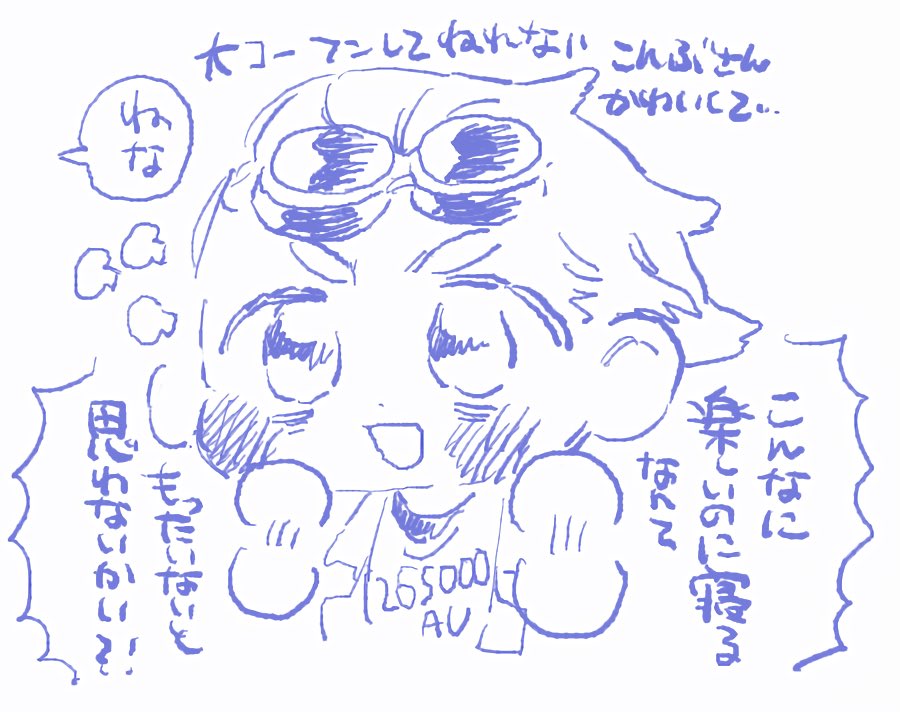 大コーフンしてねれない
こんぶさん
かわいくて…
ねな
こんなに
楽しいのに寝る
なんて
もったいないと
思わないかい?!
265000
AU